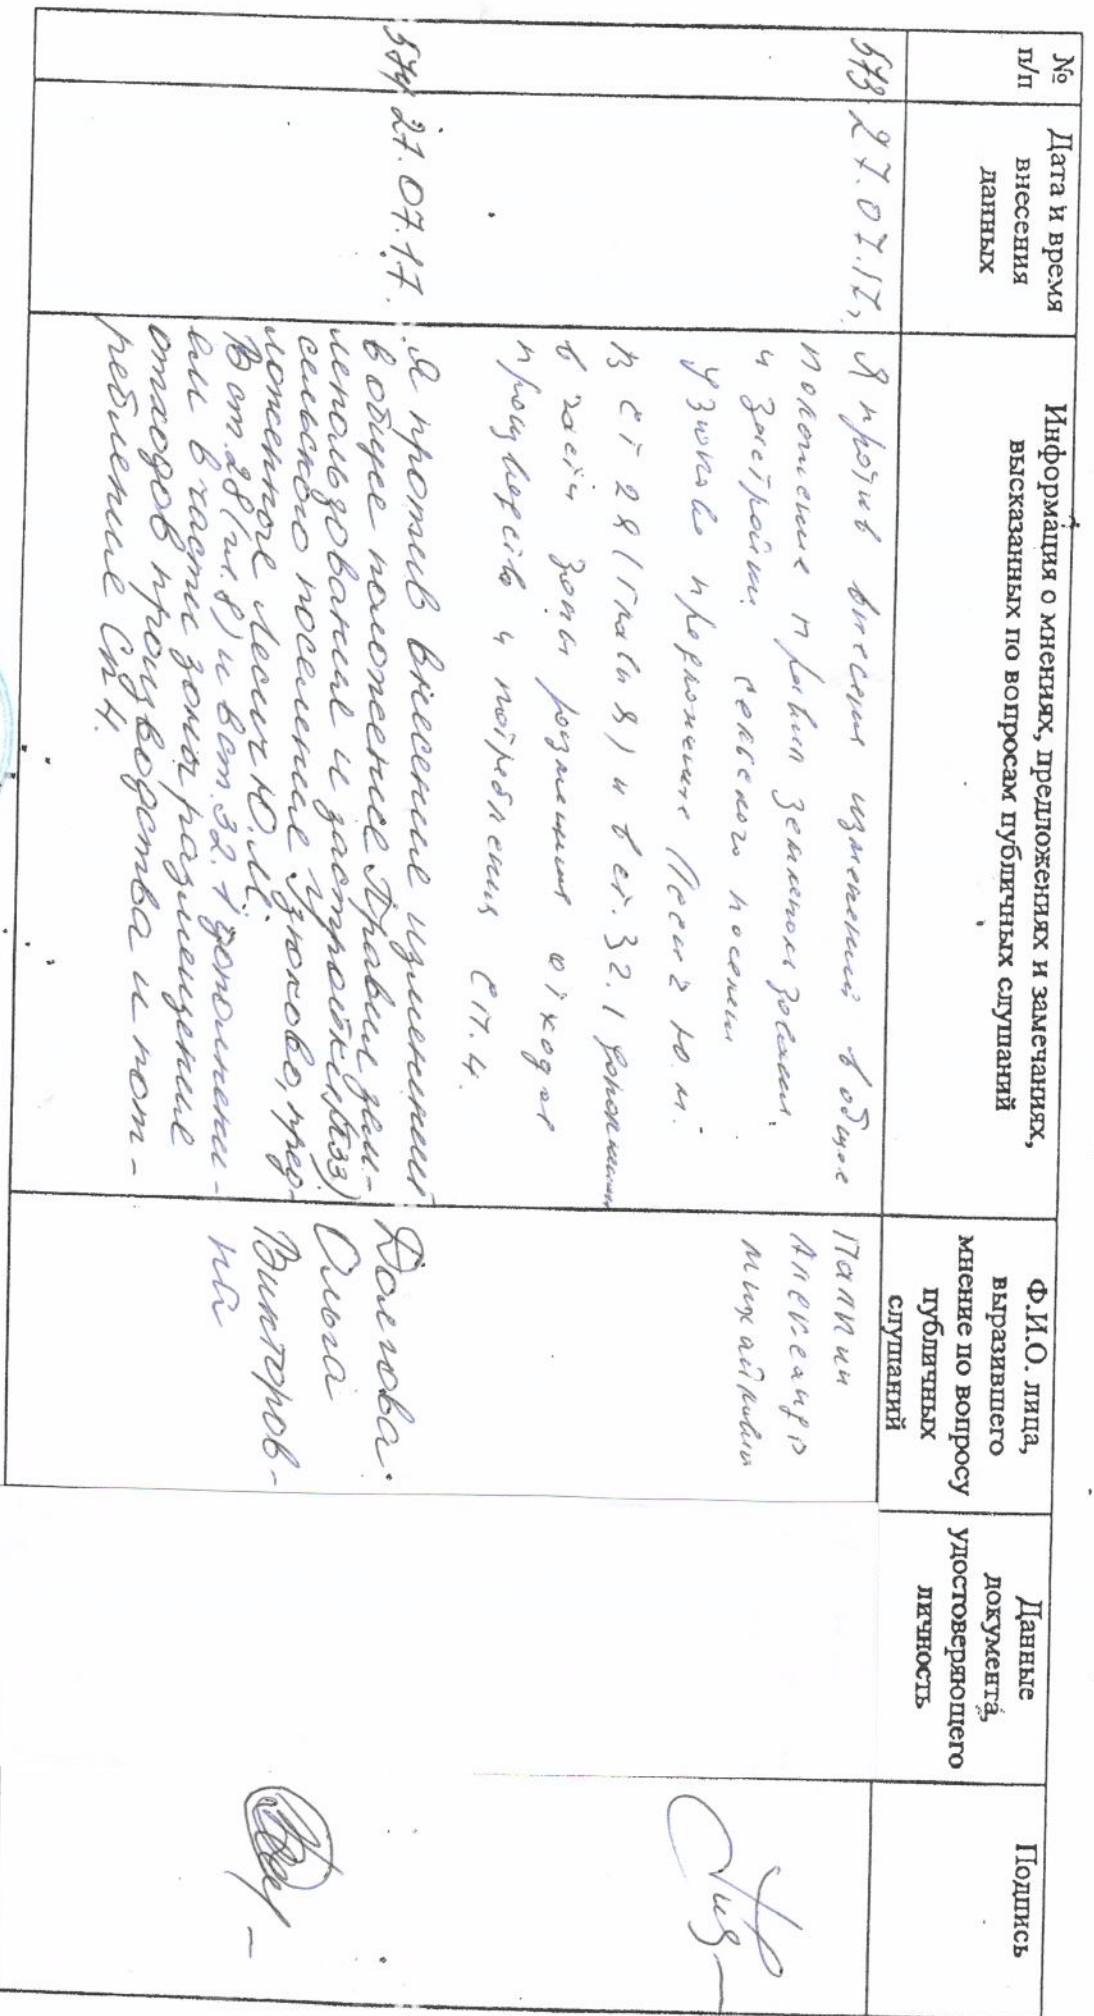 №
п/п
Дата и время
внесения
данных
Информация о мнениях, предложениях и замечаниях,
высказанных по вопросам публичных слушаний
Ф.И.О. лица,
выразившего
мнение по вопросу
публичных
слушаний
Данные
документа,
удостоверяющего
личность
Подпись
573 27.07.17г.
Я против внесения изменений в общее
положение правил землепользован.
и застройки сельского поселен
Узюково предложение Лесич Ю.М.
В ст 28 (глава 8) и в ст. 32.1 дополнении
в части зоны размещения отходов
производства и потребления СП.4.
Папин
Александр
Михайлович
574 27.07.17.
Я против внесение изменений
в общее положение Правил зем-
лепользования и застройки (ПЗЗ)
сельского поселение Узюково, пред-
ложенное Лесич Ю.М.
В ст.28(гл.8) и в ст.32.1 дополнени-
ем в части зоны размещение
отходов производства и пот-
ребление Сп4.
Долгова
Ольга
Викторов-
на